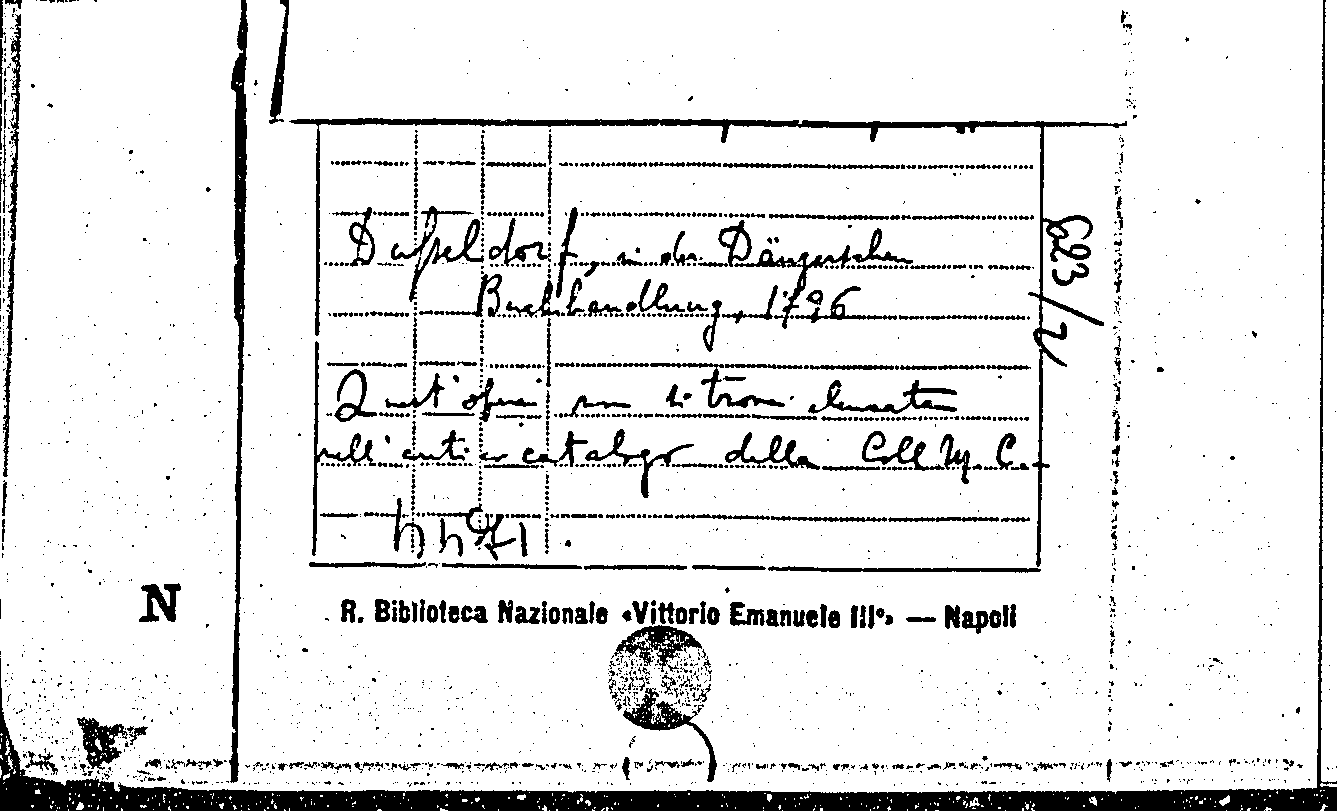 Dusseldorf, in der Dänzerschen
Buchhandlung, 1796
Quest'opera non si trova elencata
nell'antico catalogo della Coll. M. C.
623/2
N
R. Biblioteca Nazionale «Vittorio Emanuele III°» — Napoli